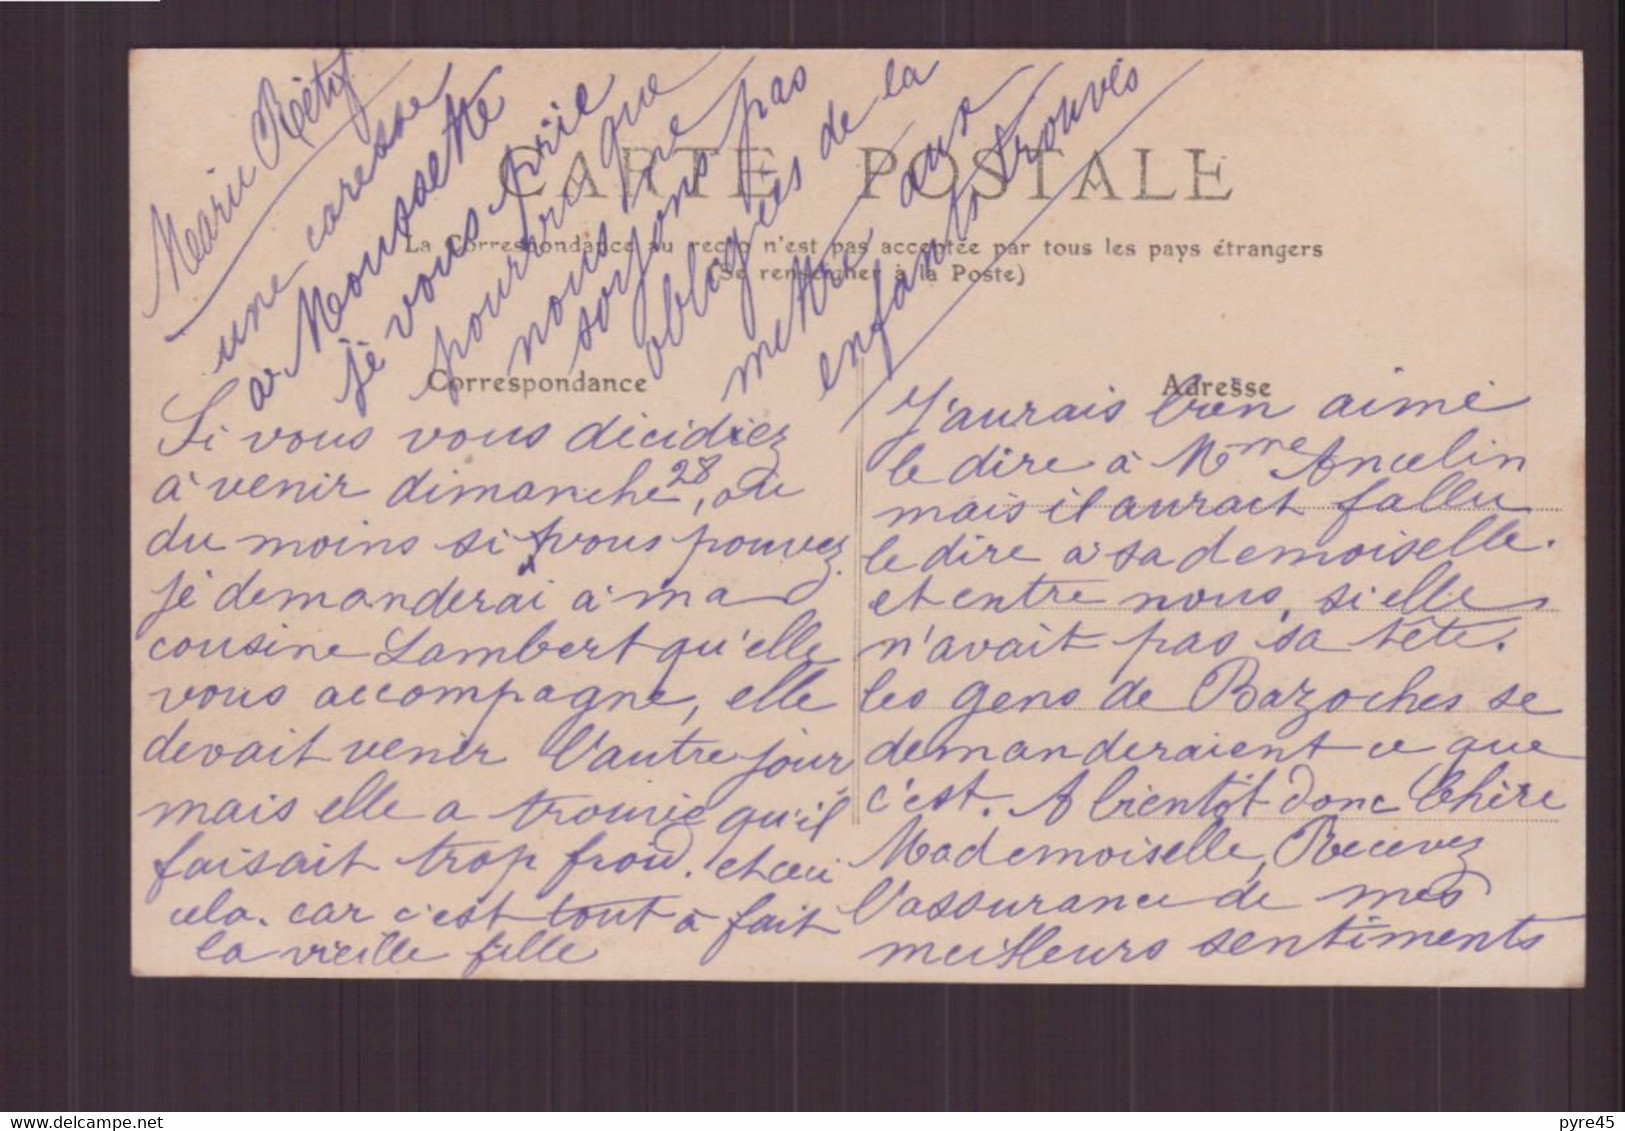 CARTE POSTALE
La Correspondance au recto n'est pas acceptée par tous les pays étrangers
(Se renseigner à la Poste)
Correspondance
Adresse
Si vous vous décidiez
à venir dimanche 28, ou
du moins si vous pouvez
je demanderai à ma
cousine Lambert qu'elle
vous accompagne, elle
devait venir l'autre jour
mais elle a trouvé qu'il
faisait trop froid.
cela. car c'est tout à fait
la vieille fille
J'aurais bien aimé
le dire à Mme Ancelin
mais il aurait fallu
le dire à sa demoiselle.
et entre nous, si elle
n'avait pas sa tête.
les gens de Bazoches se
demanderaient ce que
c'est. A bientôt donc Chère
Mademoiselle, Recevez
l'assurance de mes
meilleurs sentiments
Marie Rétif
une caresse
à Moussette
je vous prie
pourvu que
nous ne
soyons pas
obligées de la
mettre aux
enfants trouvés
pyre45